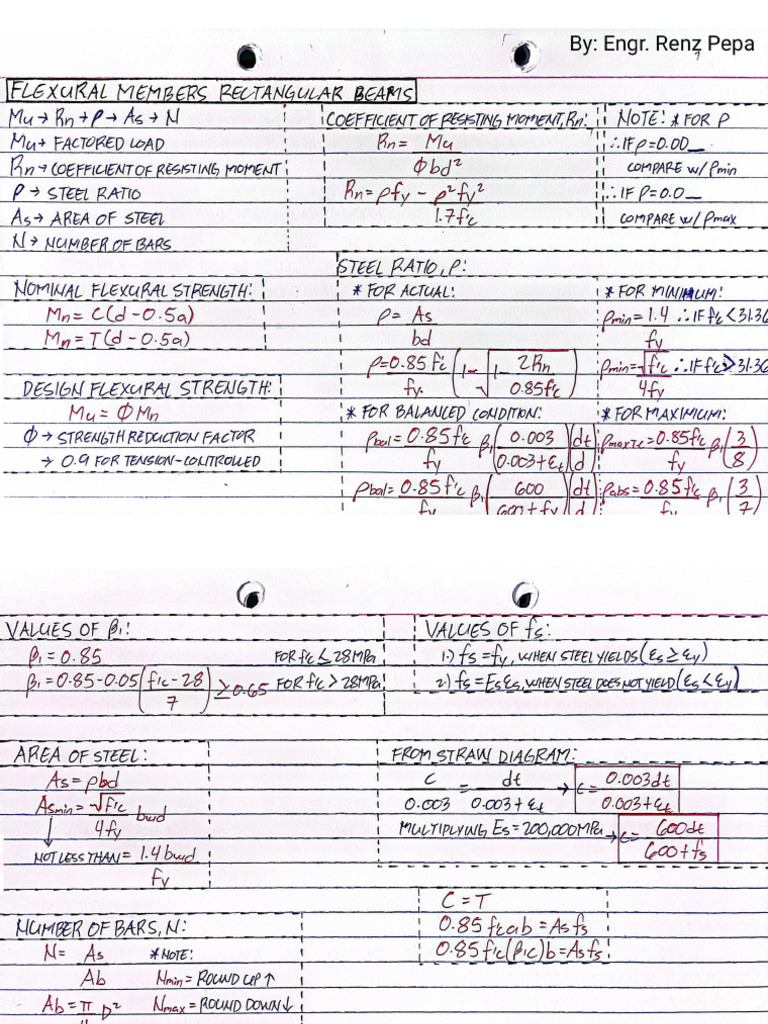 By: Engr. Renz Pepa
FLEXURAL MEMBERS RECTANGULAR BEAMS
Mu → Rn → ρ → As → N
Mu → FACTORED LOAD
Rn → COEFFICIENT OF RESISTING MOMENT
ρ → STEEL RATIO
As → AREA OF STEEL
N → NUMBER OF BARS
COEFFICIENT OF RESISTING MOMENT, Rn:
Rn = Mu / ϕbd²
Rn = ρfy - ρ²fy² / 1.7f'c
NOTE: * FOR ρ
∴ IF ρ = 0.00_
COMPARE w/ ρmin
∴ IF ρ = 0.0_
COMPARE w/ ρmax
NOMINAL FLEXURAL STRENGTH:
Mn = C(d - 0.5a)
Mn = T(d - 0.5a)
DESIGN FLEXURAL STRENGTH:
Mu = ϕMn
ϕ → STRENGTH REDUCTION FACTOR
→ 0.9 FOR TENSION-CONTROLLED
STEEL RATIO, ρ:
* FOR ACTUAL:
ρ = As / bd
ρ = 0.85 f'c / fy (1 - √1 - 2Rn / 0.85f'c)
* FOR MINIMUM:
ρmin = 1.4 / fy ∴ IF f'c < 31.36
ρmin = √f'c / 4fy ∴ IF f'c > 31.36
* FOR BALANCED CONDITION:
ρbal = 0.85f'c / fy β1 (0.003 / 0.003 + εt) (dt / d)
ρbal = 0.85f'c / fy β1 (600 / 600 + fy) (dt / d)
* FOR MAXIMUM:
ρmaxTC = 0.85f'c / fy β1 (3 / 8)
ρabs = 0.85f'c / fy β1 (3 / 7)
VALUES OF β1:
β1 = 0.85 FOR f'c ≤ 28MPa
β1 = 0.85 - 0.05 (f'c - 28 / 7) ≥ 0.65 FOR f'c > 28MPa
VALUES OF fs:
1.) fs = fy, WHEN STEEL YIELDS (εs ≥ εy)
2.) fs = Esεs, WHEN STEEL DOES NOT YIELD (εs < εy)
AREA OF STEEL:
As = ρbd
Asmin = √f'c / 4fy bwd
NOT LESS THAN = 1.4bwd / fy
FROM STRAW DIAGRAM:
c / 0.003 = dt / 0.003 + εt → c = 0.003dt / 0.003 + εt
MULTIPLYING Es = 200,000MPa → c = 600dt / 600 + fs
C = T
0.85f'cab = Asfs
0.85f'c(β1c)b = Asfs
NUMBER OF BARS, N:
N = As / Ab
Ab = π / 4 D²
* NOTE:
Nmin = ROUND UP ↑
Nmax = ROUND DOWN ↓